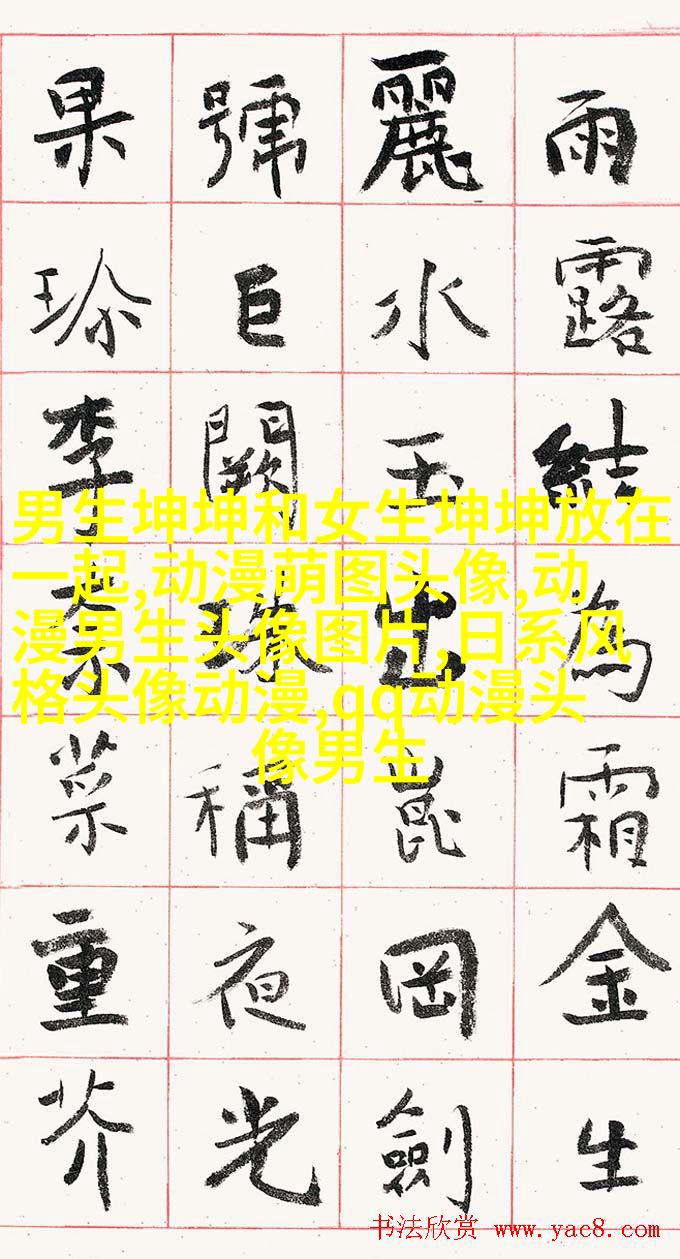 雨露結為霜金生
麗水玉出崑岡劍
號巨闕珠稱夜光
果珍李柰菜重芥
男生坤坤和女生坤坤放在
一起,动漫萌图头像,动
漫男生头像图片,日系风
格头像动漫,qq动漫头
像男生
书法欣赏 www.yac8.com